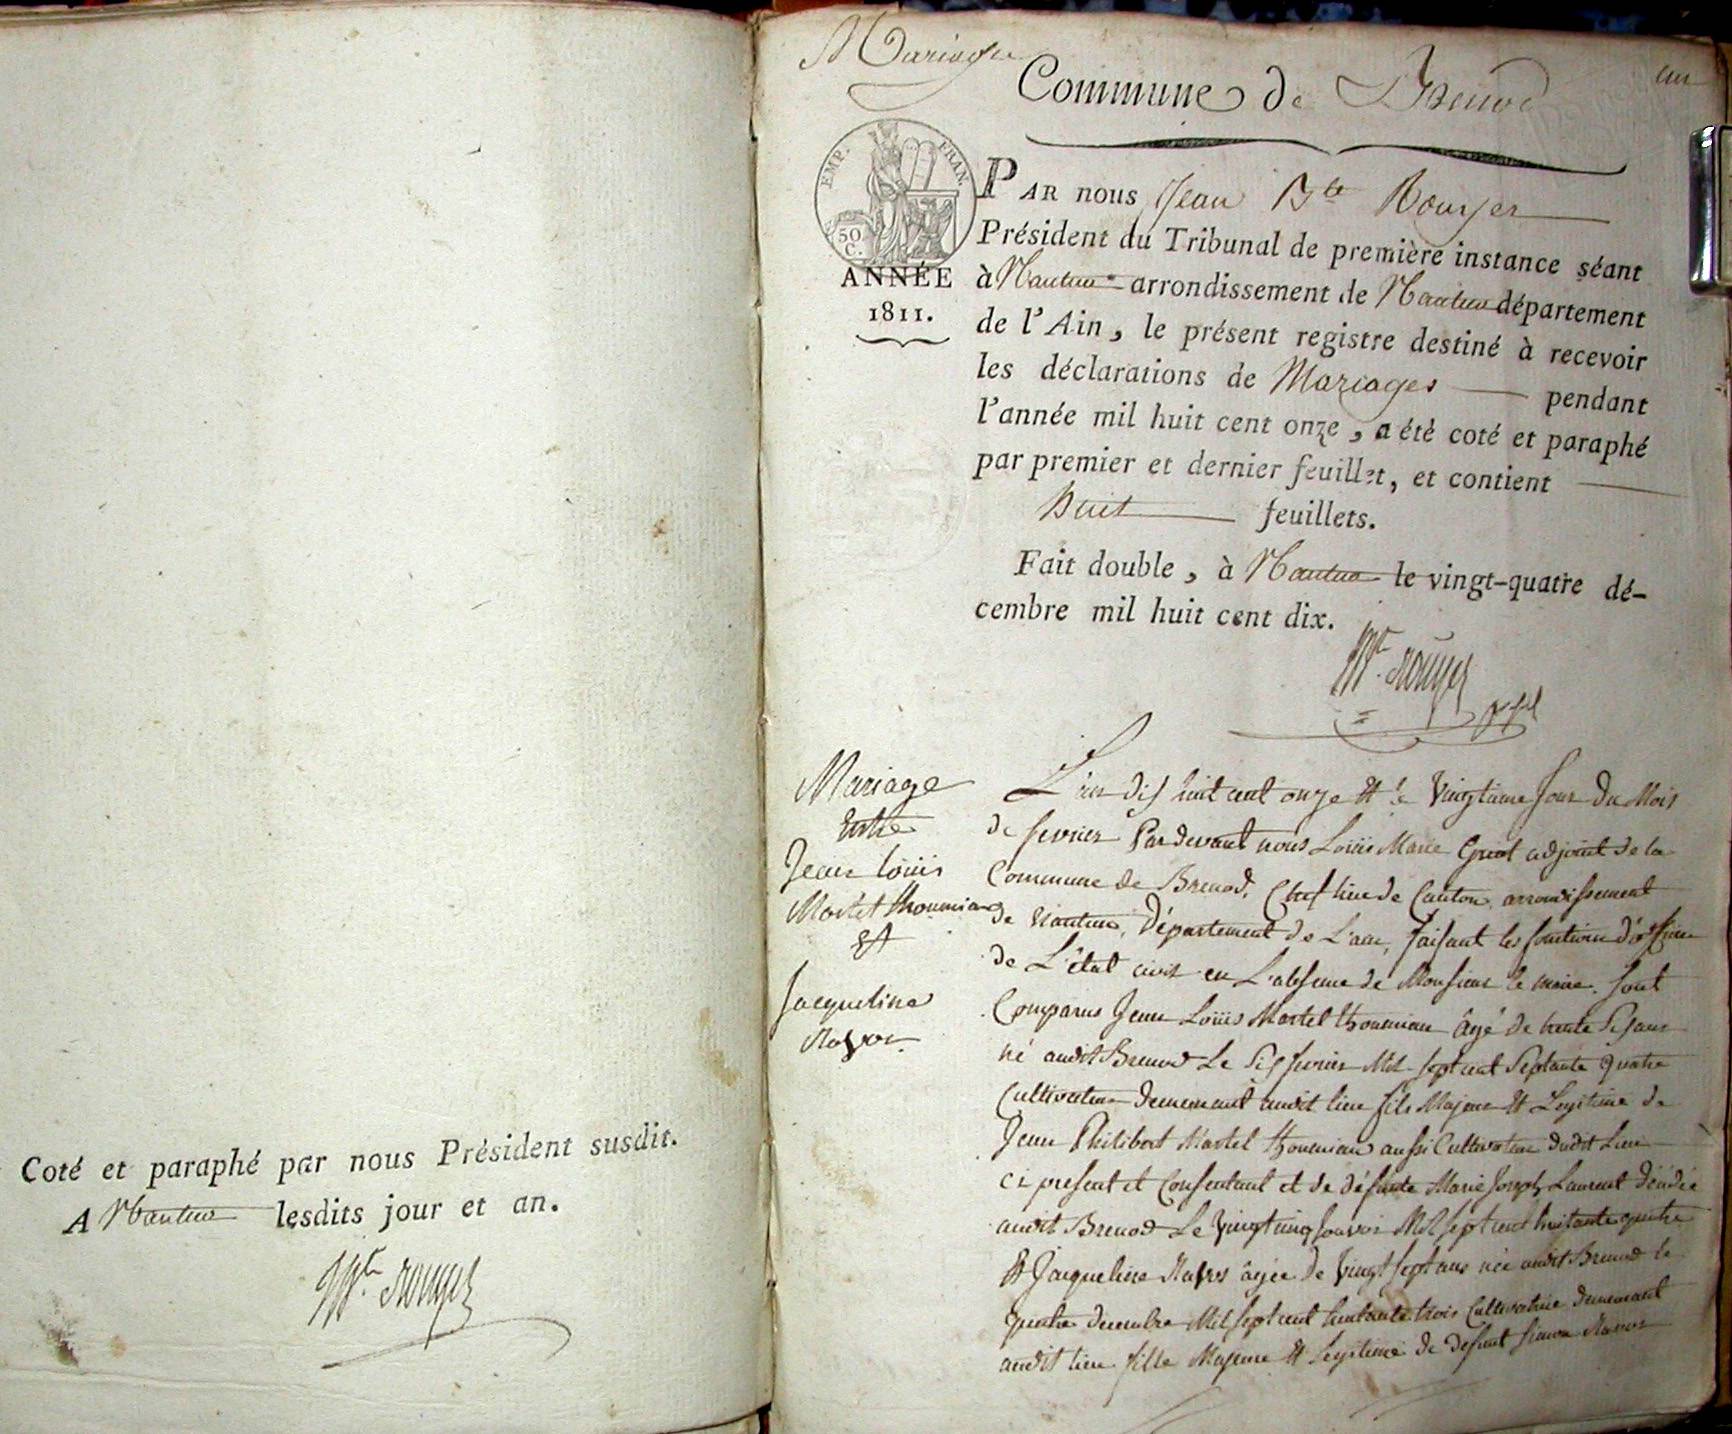 Coté et paraphé par nous Président susdit.
A Nantua lesdits jour et an.
Bte Rouyer
Mariages
un
Commune de Brenod
EMP. FRAN.
50 C.
ANNÉE
1811.
PAR nous Jean Bte Rouyer
Président du Tribunal de première instance séant
à Nantua arrondissement de Nantua département
de l'Ain, le présent registre destiné à recevoir
les déclarations de Mariages pendant
l'année mil huit cent onze, a été coté et paraphé
par premier et dernier feuillet, et contient
huit feuillets.
Fait double, à Nantua le vingt-quatre dé-
cembre mil huit cent dix.
Bte Rouyer
Mariage
Entre
Jean Loüis
Martel thoumian
Et
Jacqueline
L'an dix huit cent onze Et le Vingtieme Jour du Mois
de fevrier Pardevant nous Loüis Marie adjoint de la
Commune de Brenod, Chef lieu de Canton, arrondissement
de nantua, Département de L'ain, faisant les fonctions d'officier
de L'état civil en L'absence de Monsieur le maire. Sont
Comparus Jean Loüis Martel thoumian âgé de trente Sept ans
né audit Brenod Le Six fevrier Mil Sept cent Septante quatre
Cultivateur Demeurant audit lieu fils Majeur Et Legitime de
Jean Philibert Martel thoumian aussi Cultivateur dudit Lieu
ci present et Consentant et de défunte Marie Joseph Laurent Décédée
audit Brenod Le Vingt cinq Mil Sept cent huitante quatre
Et Jacqueline âgée de Vingt Sept ans née audit Brenod le
quatre decembre Mil Sept cent huitante trois Cultivatrice Demeurant
audit lieu fille Majeure Et Legitime de defunt